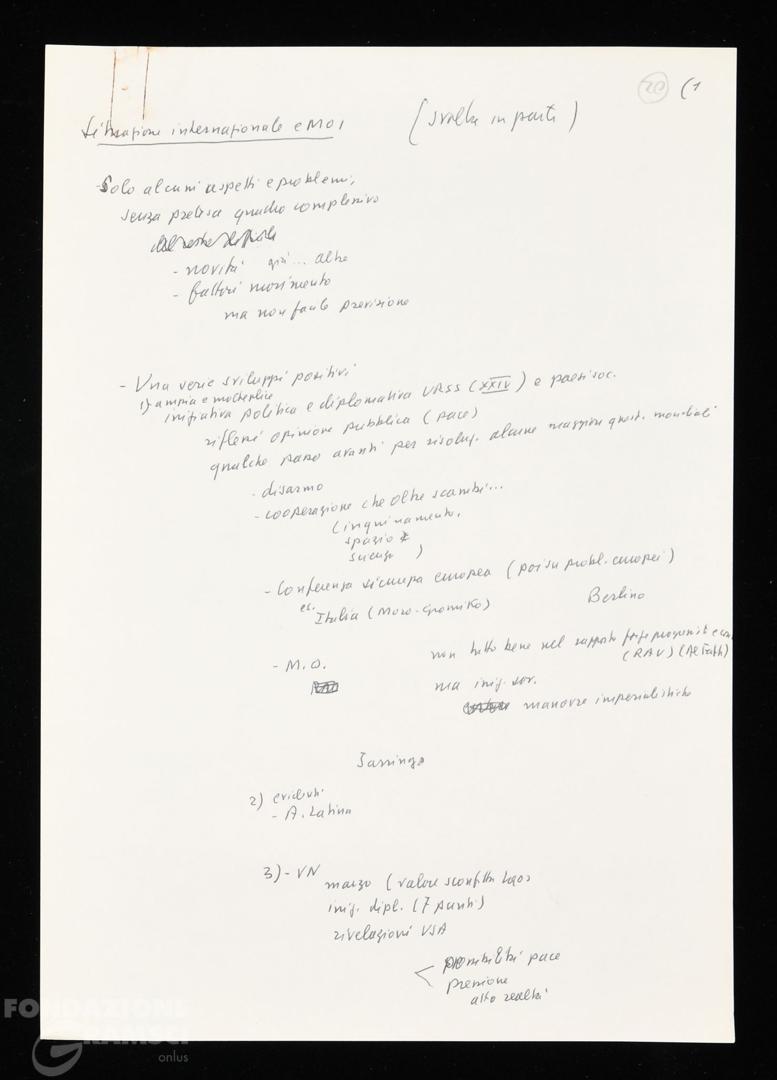 20 (1
Situazione internazionale e MOI (svolta in parte)
- Solo alcuni aspetti e problemi,
senza pretesa quadro complessivo
- novità già ... altre
- fattori movimento
ma non facile previsione
- Una serie sviluppi positivi
1) ampia e molteplice
iniziativa politica e diplomatica URSS (XXIV) e paesi soc.
riflessi opinione pubblica (pace)
qualche passo avanti per risoluz. alcune maggiori quest. mondiali
- disarmo
- cooperazione che oltre scambi...
(inquinamento,
spazio
scienza)
- Conferenza sicurezza europea (poi su probl. europei)
es. Italia (Moro-Gromiko) Berlino
- M.O. non tutto bene nel rapporto progressist
(RAU) (Al Fatah)
ma iniz. sov.
manovre imperialistiche
Jarring
2) evidenti
- A. Latina
3) - VN
marzo (valore sconfitta Laos
iniz. dipl. (7 punti)
rivelazioni USA
< possibilità pace
pressione
alto realtà
FONDAZIONE
GRAMSCI
onlus